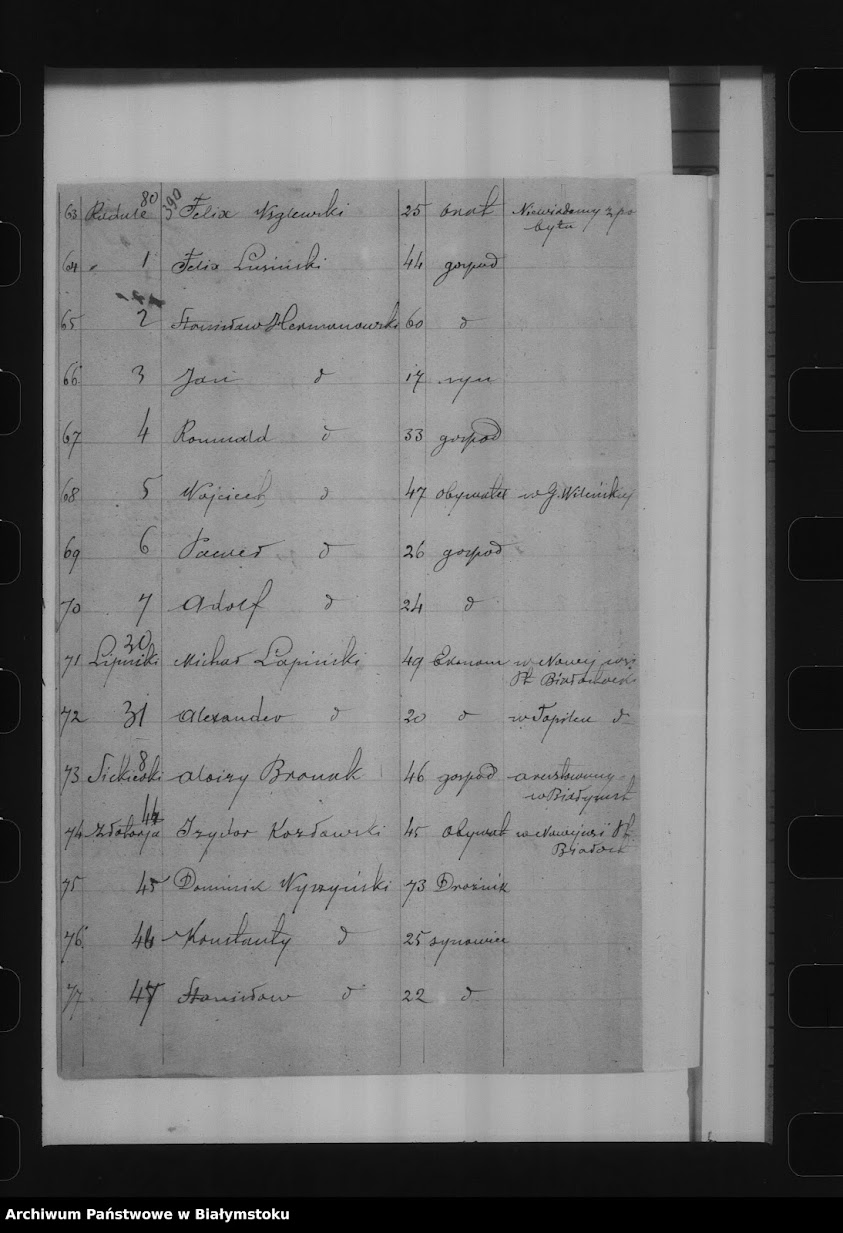 63 Rudule 80 390 Felix Wyglewski 25 Niewiadomy z po
bytu
64 " 1 Felix Lusiński 44 gospod
65 2 Stanisław Hermanowski 60 d
66 3 Jan d 17 syn
67 4 Romuald d 33 gospod
68 5 Wojciech d 47 obywatel w G. Wileńskiej
69 6 Paweł d 26 gospod
70 7 Adolf d 24 d
71 Lipniki 30 Michał Łapiński 49 Ekonom w Nowej wsi
72 31 Alexander d 20 d w Topilcu d
73 8 Aloizy Bronak 46 gospod aresztowany
w Białymst
74 44 Izydor Kozłowski 45 Obywat w Nowejwsi
75 45 Dominik Wyszyński 73 Droźnik
76 46 Konstanty d 25 synowiec
77 47 Stanisław d 22 d
Archiwum Państwowe w Białymstoku